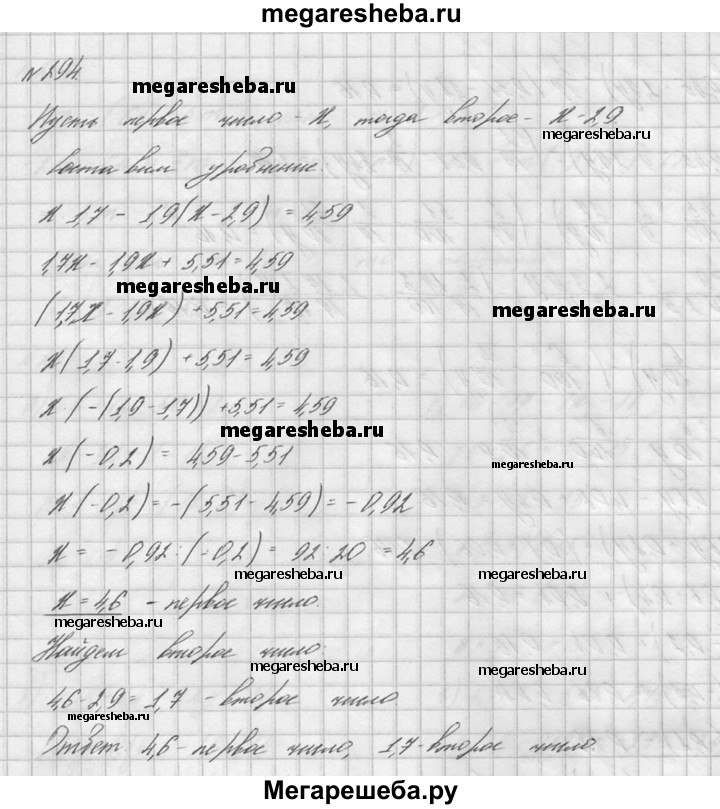 megaresheba.ru
№ 294.
megaresheba.ru
Пусть первое число - x, тогда второе - x - 2,9
megaresheba.ru
Составим уравнение:
x 1,7 - 1,9(x - 2,9) = 4,59
1,7x - 1,9x + 5,51 = 4,59
megaresheba.ru
(1,7x - 1,9x) + 5,51 = 4,59
megaresheba.ru
x(1,7-1,9) + 5,51 = 4,59
x (-(1,9-1,7)) + 5,51 = 4,59
megaresheba.ru
x (-0,2) = 4,59-5,51
megaresheba.ru
x (-0,2) = -(5,51-4,59) = -0,92
x = -0,92:(-0,2) = 92:20 = 4,6
megaresheba.ru
megaresheba.ru
x = 4,6 - первое число.
megaresheba.ru
Найдем второе число:
megaresheba.ru
megaresheba.ru
4,6-2,9 = 1,7 - второе число.
megaresheba.ru
Ответ: 4,6 - первое число, 1,7 - второе число.
Мегарешеба.ру